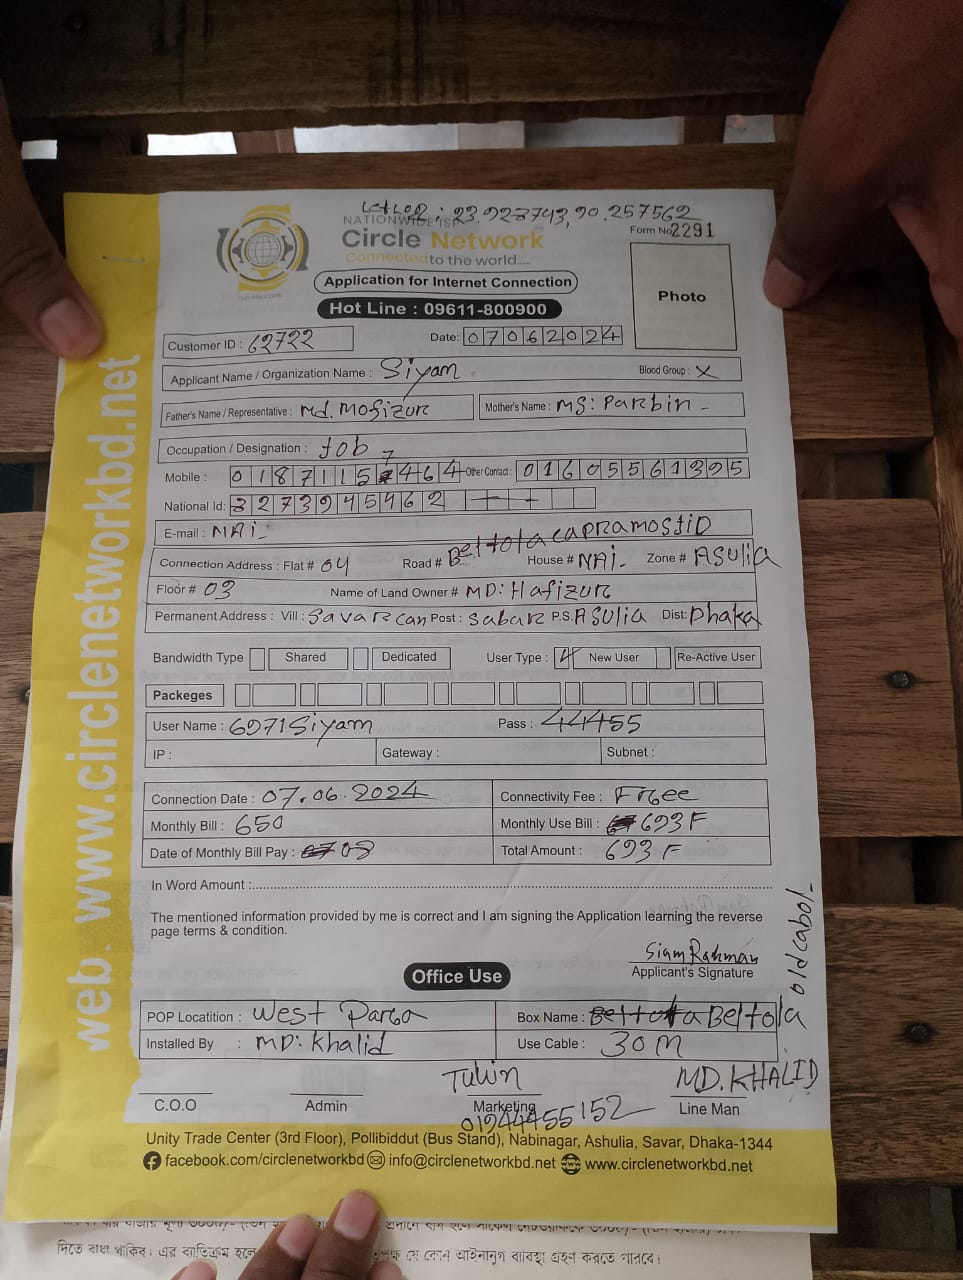 Letlog: 23.923743,90.257562
NATIONWIDE ISP
Circle Network
Connected to the world.....
Form No 2291
Application for Internet Connection
Hot Line : 09611-800900
Photo
Customer ID : 62722
Date: 07062024
Applicant Name / Organization Name : Siyam
Blood Group : X
Father's Name / Representative : Md. Mofizur
Mother's Name : MS: Parbin -
Occupation / Designation : Job
Mobile : 01871157464 Other Contact : 01605561395
National Id: 3273945962
E-mail : NAi-
Connection Address : Flat # 04 Road # Beltola capramostid House # NAi- Zone # ASulia
Floor # 03 Name of Land Owner # MD: Hafizur
Permanent Address : Vill : Savar can Post : Sabar P.S. ASulia Dist: Dhaka
Bandwidth Type Shared Dedicated User Type : New User Re-Active User
Packeges
User Name : 6971Siyam Pass : 44455
IP : Gateway : Subnet :
Connection Date : 07.06.2024 Connectivity Fee : Free
Monthly Bill : 650 Monthly Use Bill : 693 F
Date of Monthly Bill Pay : 08 Total Amount : 693 F
In Word Amount :
The mentioned information provided by me is correct and I am signing the Application learning the reverse
page terms & condition.
Siam Rahman
Applicant's Signature
old cabol-
Office Use
POP Locatition : West Para Box Name : Beltola
Installed By : MD: Khalid Use Cable : 30 M
Tuhin MD. KHALID
C.O.O Admin Marketing Line Man
01944455152
Unity Trade Center (3rd Floor), Pollibiddut (Bus Stand), Nabinagar, Ashulia, Savar, Dhaka-1344
facebook.com/circlenetworkbd info@circlenetworkbd.net www.circlenetworkbd.net
web. www.circlenetworkbd.net
দিতে বাধ্য থাকিব। এর ব্যতিক্রম হলে যে কোন আইনানুগ ব্যবস্থা গ্রহণ করতে পারবে।